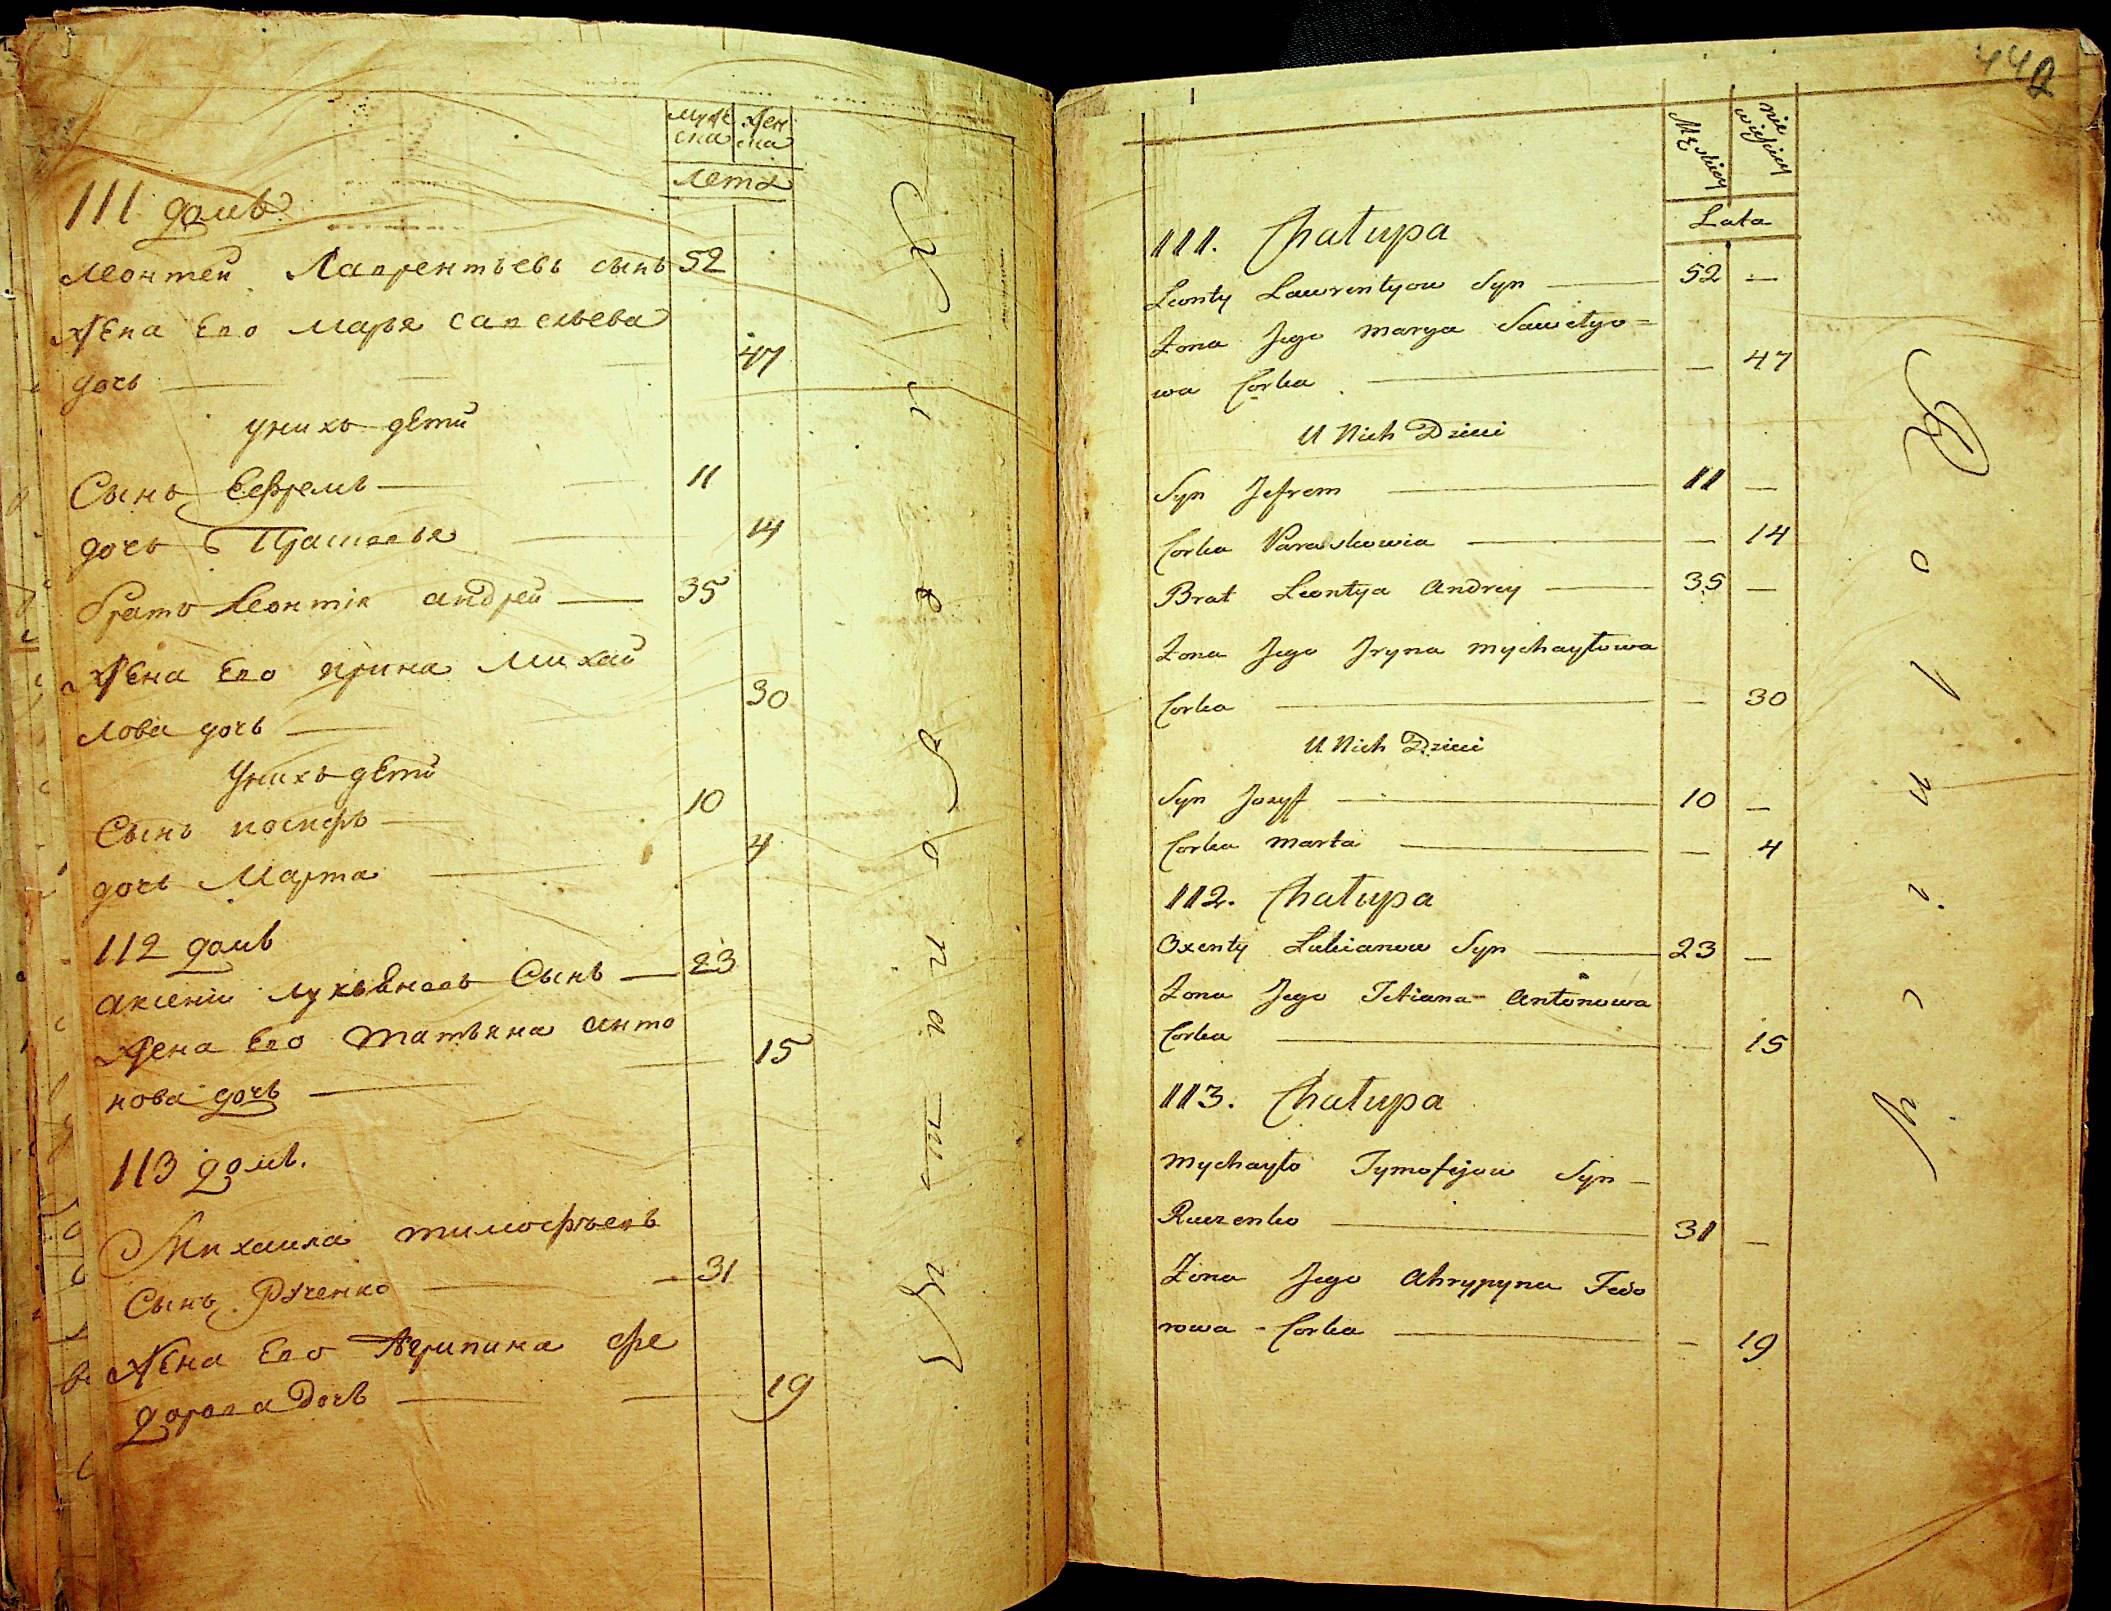 муже ска
жен ска
лета
111 домъ
Леонтей Лаврентьевъ сынъ 52
Жена Его Марья Савельева
дочь 47
у нихъ дети
Сынъ Ефремъ 11
дочь Прасковья 14
братъ Леонтія андрей 35
Жена Его ирина Михай
лова дочь 30
у нихъ дети
Сынъ иосифъ 10
дочь Марта 4
112 домъ
аксеній лукьяновъ Сынъ 23
Жена Его татьяна анто
нова дочь 15
113 домъ.
Михаила тимофѣевъ
Сынъ Рученко 31
Жена Его Агрипина фе
дорова дочь 19
442
Męskiey
niewieściey
Lata
111. Chałupa
Leonty Lawrentyow Syn 52 —
Żona Jego Marya Sawelyo=
wa Corka — 47
U Nich Dzieci
Syn Jefrem 11 —
Corka Paraskowia — 14
Brat Leontya Andrey 35 —
Żona Jego Jryna Mychayłowa
Corka — 30
U Nich Dzieci
Syn Jozyff 10 —
Corka Marta — 4
112. Chałupa
Oxenty Lukianow Syn 23 —
Żona Jego Tetiana Antonowa
Corka — 15
113. Chałupa
Mychayło Tymofejow Syn —
Ruczenko 31 —
Żona Jego Ahrypyna Fedo
rowa - Corka — 19
R o l n i c y